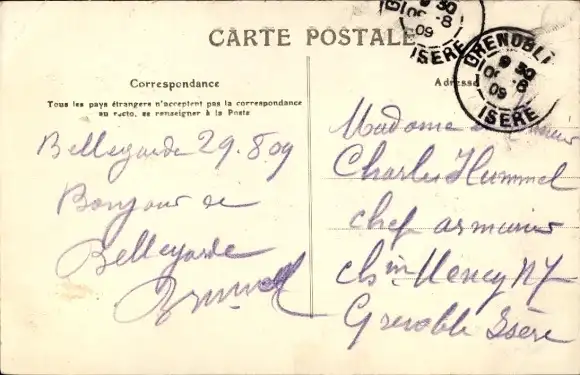 CARTE POSTALE
Correspondance
Tous les pays étrangers n'acceptent pas la correspondance
au recto, se renseigner à la Poste
Bellegarde 29.8 09
Bonjour de
Bellegarde
Adresse
GRENOBLE
9 30
8
09
ISERE
9 30
8
09
ISERE
Madame
Charles Hummel
chef armurier
Grenoble Isère